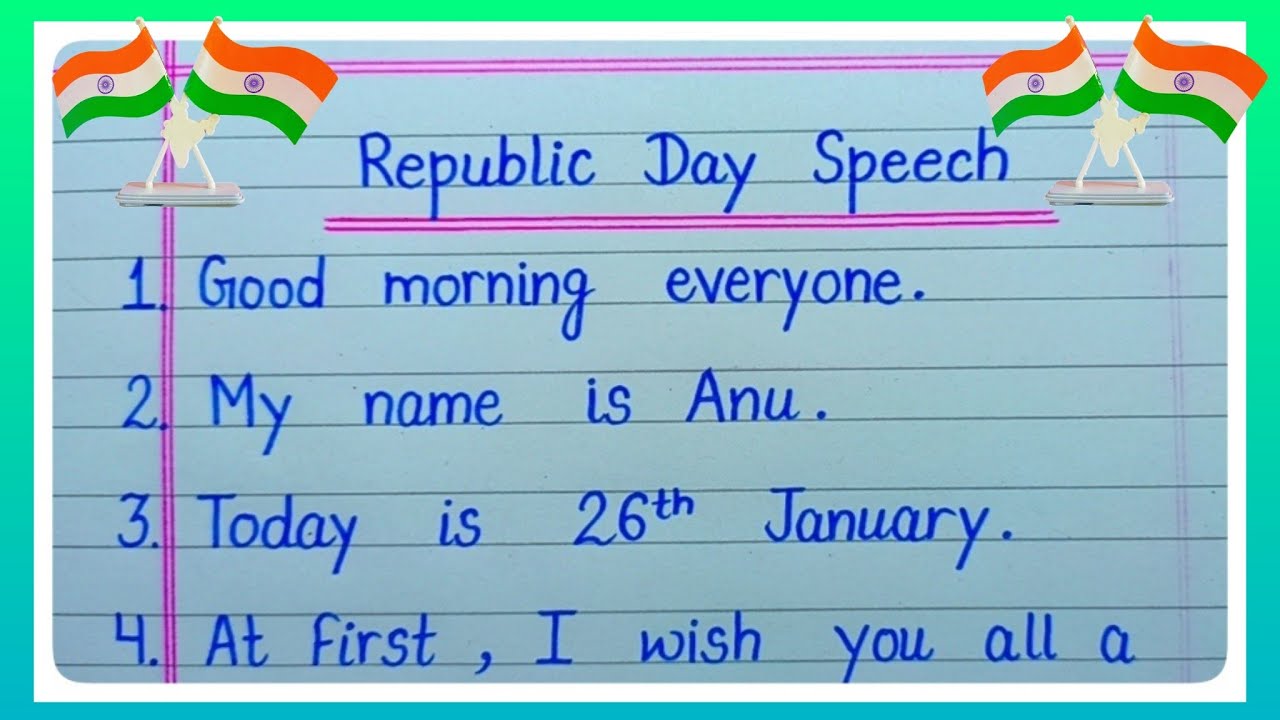 Republic Day Speech
1. Good morning everyone.
2. My name is Anu.
3. Today is 26th January.
4. At first, I wish you all a